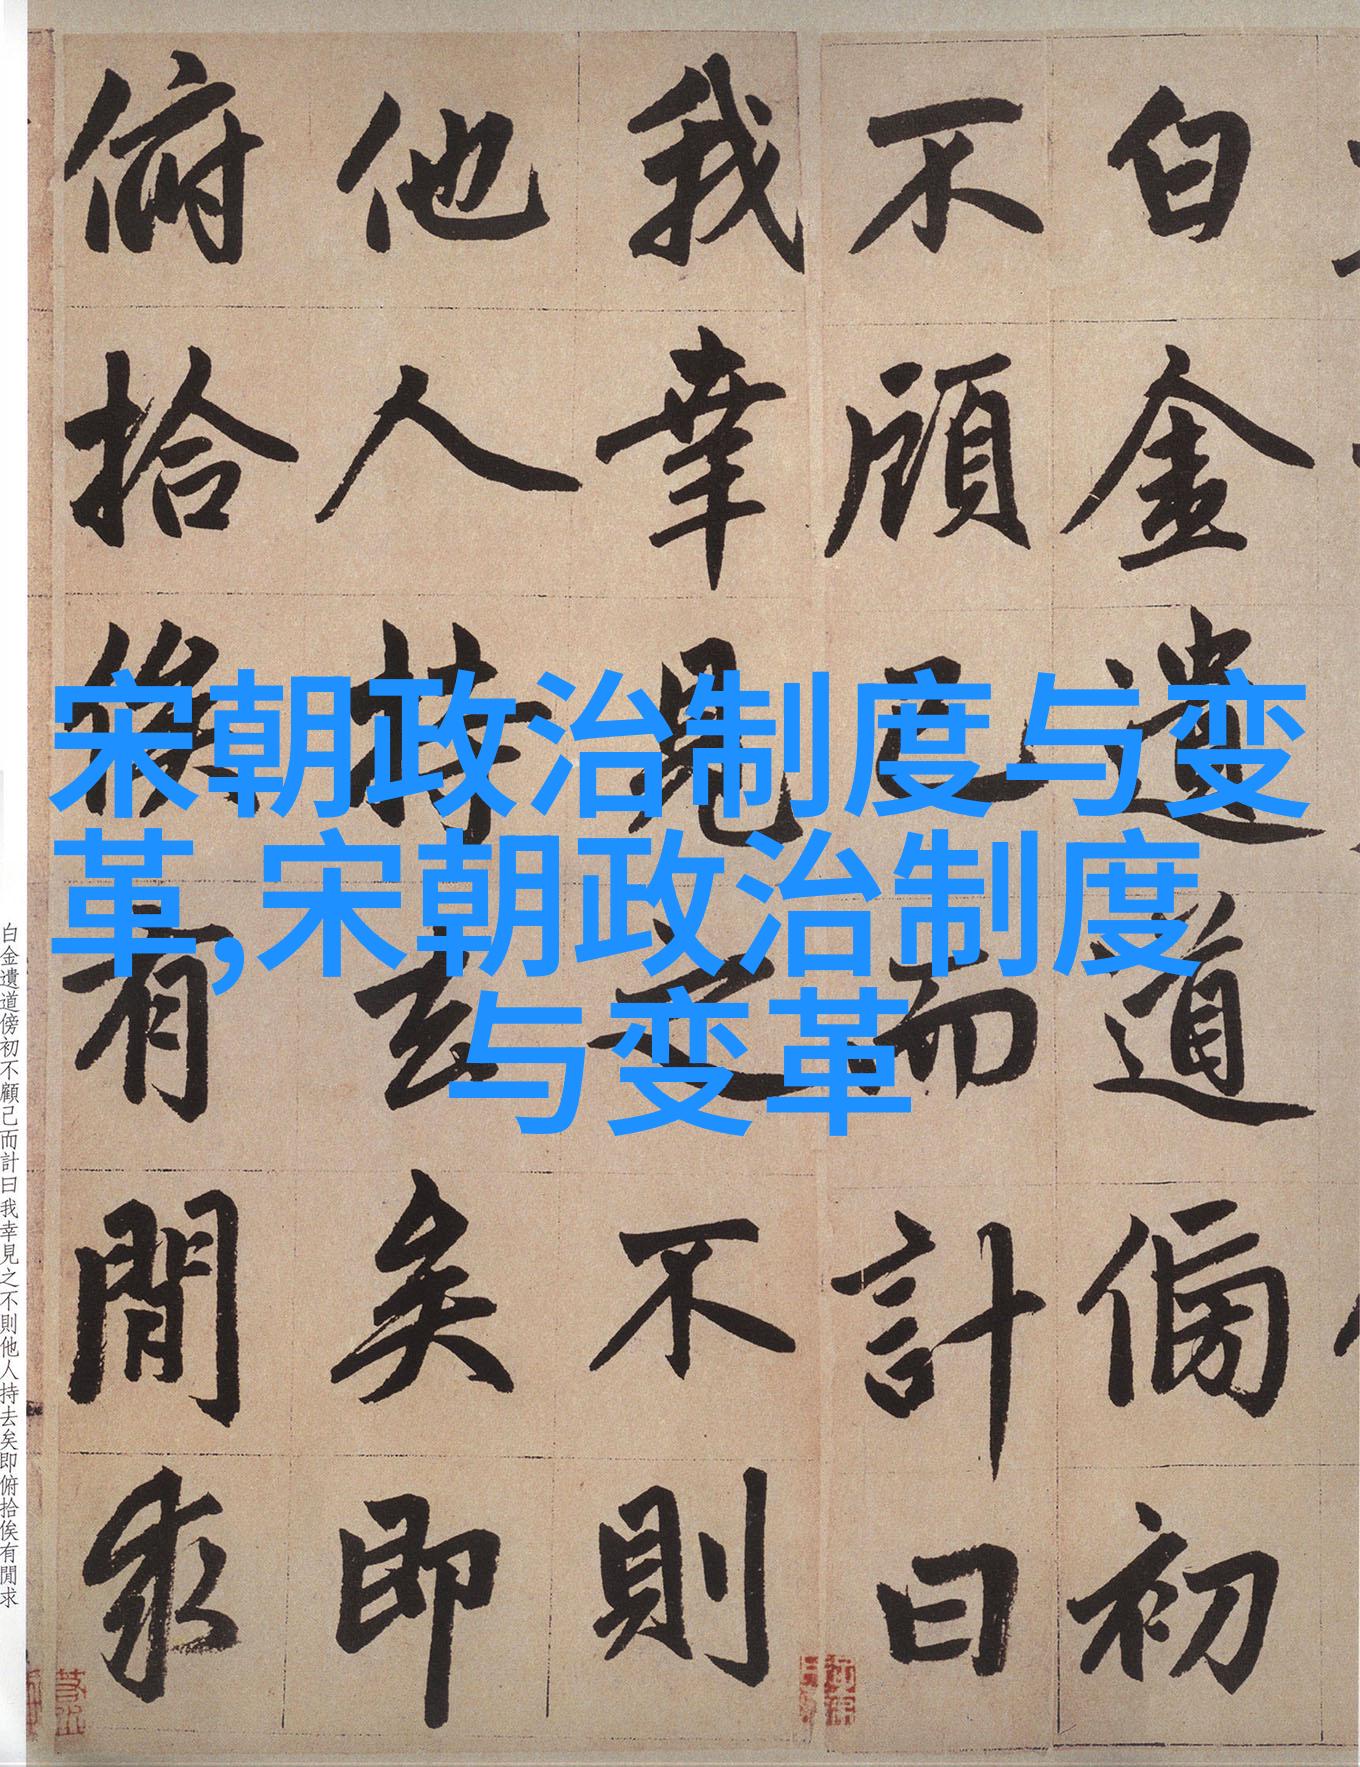 白金遺道傍初
不顧己而計曰
我幸見之不則
他人持去矣即
俯拾俟有閒求
宋朝政治制度与变
革,宋朝政治制度
与变革
白金遺道傍初不顧己而計曰我幸見之不則他人持去矣即俯拾俟有閒求